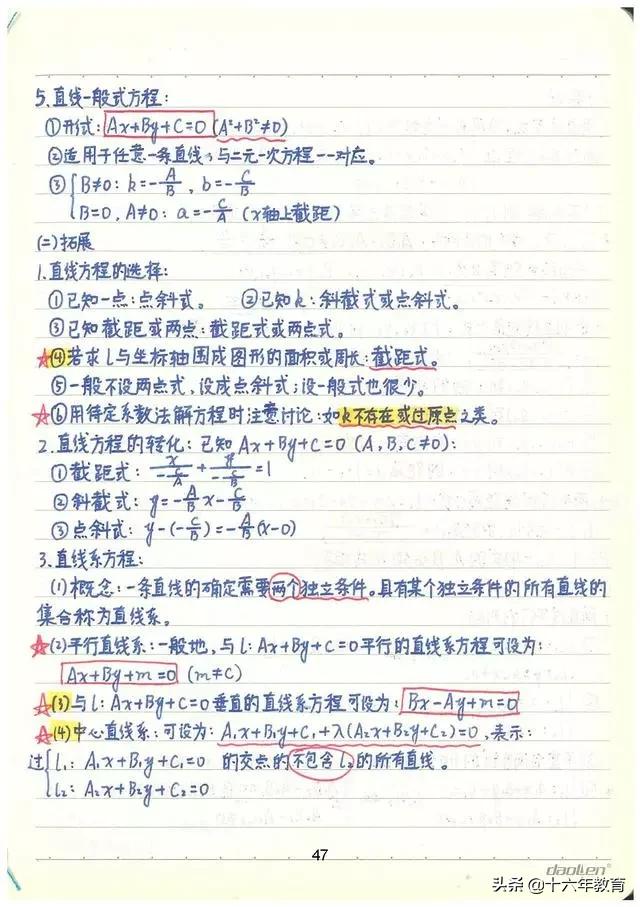 5.直线一般式方程:
①形式:Ax+By+C=0 (A²+B²≠0)
②适用于任意一条直线,与二元一次方程一一对应。
③{B≠0: k=-A/B, b=-C/B
B=0, A≠0: a=-C/A (x轴上截距)
(二)拓展
1.直线方程的选择:
①已知一点:点斜式。 ②已知k:斜截式或点斜式。
③已知截距或两点:截距式或两点式。
☆④若求l与坐标轴围成图形的面积或周长:截距式。
⑤一般不设两点式,设成点斜式;设一般式也很少。
☆⑥用待定系数法解方程时注意讨论:如k不存在或过原点之类。
2.直线方程的转化:已知Ax+By+C=0 (A,B,C≠0):
①截距式: x/(-C/A) + y/(-C/B) =1
②斜截式: y=-A/B x-C/B
③点斜式: y-(-C/B)=-A/B(x-0)
3.直线系方程:
(1)概念:一条直线的确定需要两个独立条件。具有某个独立条件的所有直线的
集合称为直线系。
☆(2)平行直线系:一般地,与l:Ax+By+C=0平行的直线系方程可设为:
Ax+By+m=0 (m≠C)
☆(3)与l:Ax+By+C=0垂直的直线系方程可设为:Bx-Ay+m=0
☆(4)中心直线系:可设为:A₁x+B₁y+C₁+λ(A₂x+B₂y+C₂)=0,表示:
过{l₁: A₁x+B₁y+C₁=0 的交点的不包含l₂的所有直线。
l₂: A₂x+B₂y+C₂=0
47
daolien®
头条@十六年教育